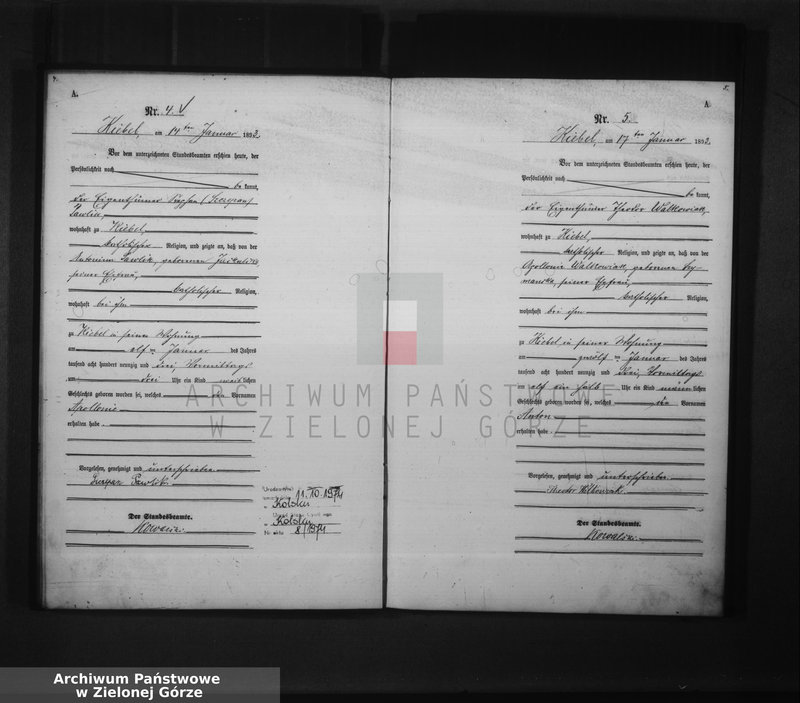 A.
Nr. 4.
Kiebel, am 14ten Januar 1893.
Vor dem unterzeichneten Standesbeamten erschien heute, der
Persönlichkeit nach
be kannt,
der Eigenthümer
Pawlik,
wohnhaft zu Kiebel,
katholischer Religion, und zeigte an, daß von der
Antonina Pawlik, geborenen
seiner Ehefrau,
katholischer Religion,
wohnhaft bei ihm
zu Kiebel in seiner Wohnung
am elf ten Januar des Jahres
tausend acht hundert neunzig und drei, Vormittags
um drei Uhr ein Kind weib lichen
Geschlechts geboren worden sei, welches den Vornamen
Apollonie
erhalten habe.
Vorgelesen, genehmigt und unterschrieben
Pawlik
Der Standesbeamte.
11.10.1974
8/1974
5.
A
Nr. 5.
Kiebel, am 17ten Januar 1893.
Vor dem unterzeichneten Standesbeamten erschien heute, der
Persönlichkeit nach
be kannt,
der Eigenthümer Theodor Walkowiak,
wohnhaft zu Kiebel,
katholischer Religion, und zeigte an, daß von der
Apollonia Walkowiak, geborenen
seiner Ehefrau,
katholischer Religion,
wohnhaft bei ihm
zu Kiebel in seiner Wohnung
am zwölf ten Januar des Jahres
tausend acht hundert neunzig und drei, Vormittags
um elf ein halb Uhr ein Kind männ lichen
Geschlechts geboren worden sei, welches den Vornamen
Anton
erhalten habe.
Vorgelesen, genehmigt und unterschrieben
Der Standesbeamte.
ARCHIWUM PAŃSTWOWE
W ZIELONEJ GÓRZE
Archiwum Państwowe
w Zielonej Górze